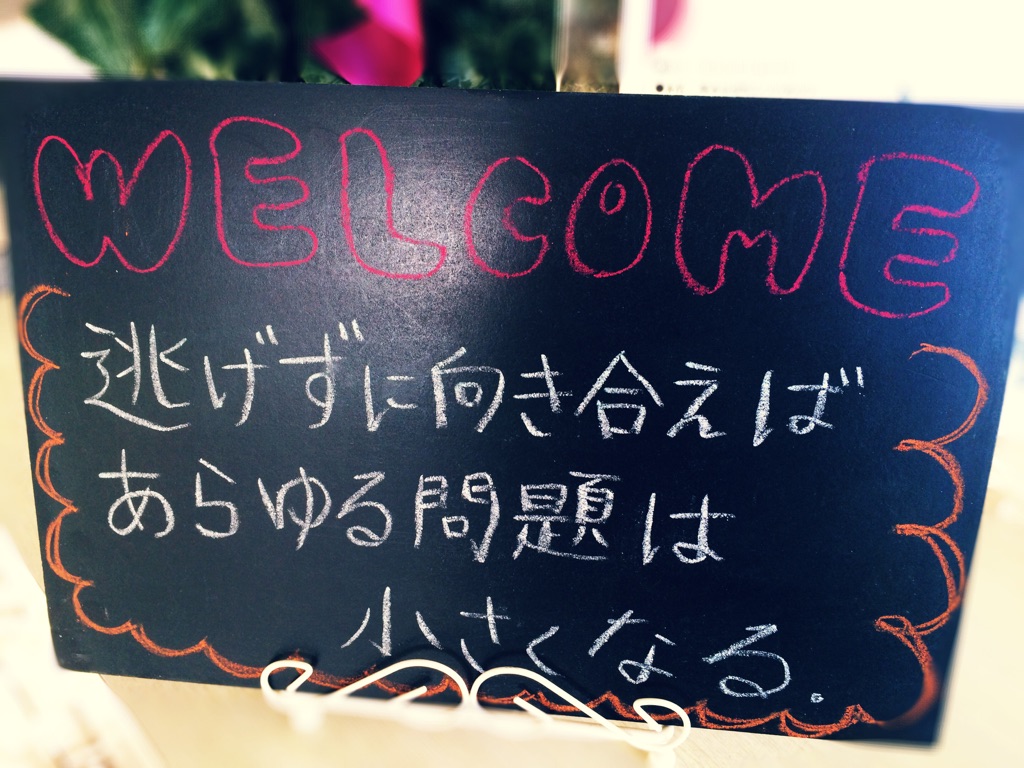 WELCOME
逃げずに向き合えば
あらゆる問題は
小さくなる。